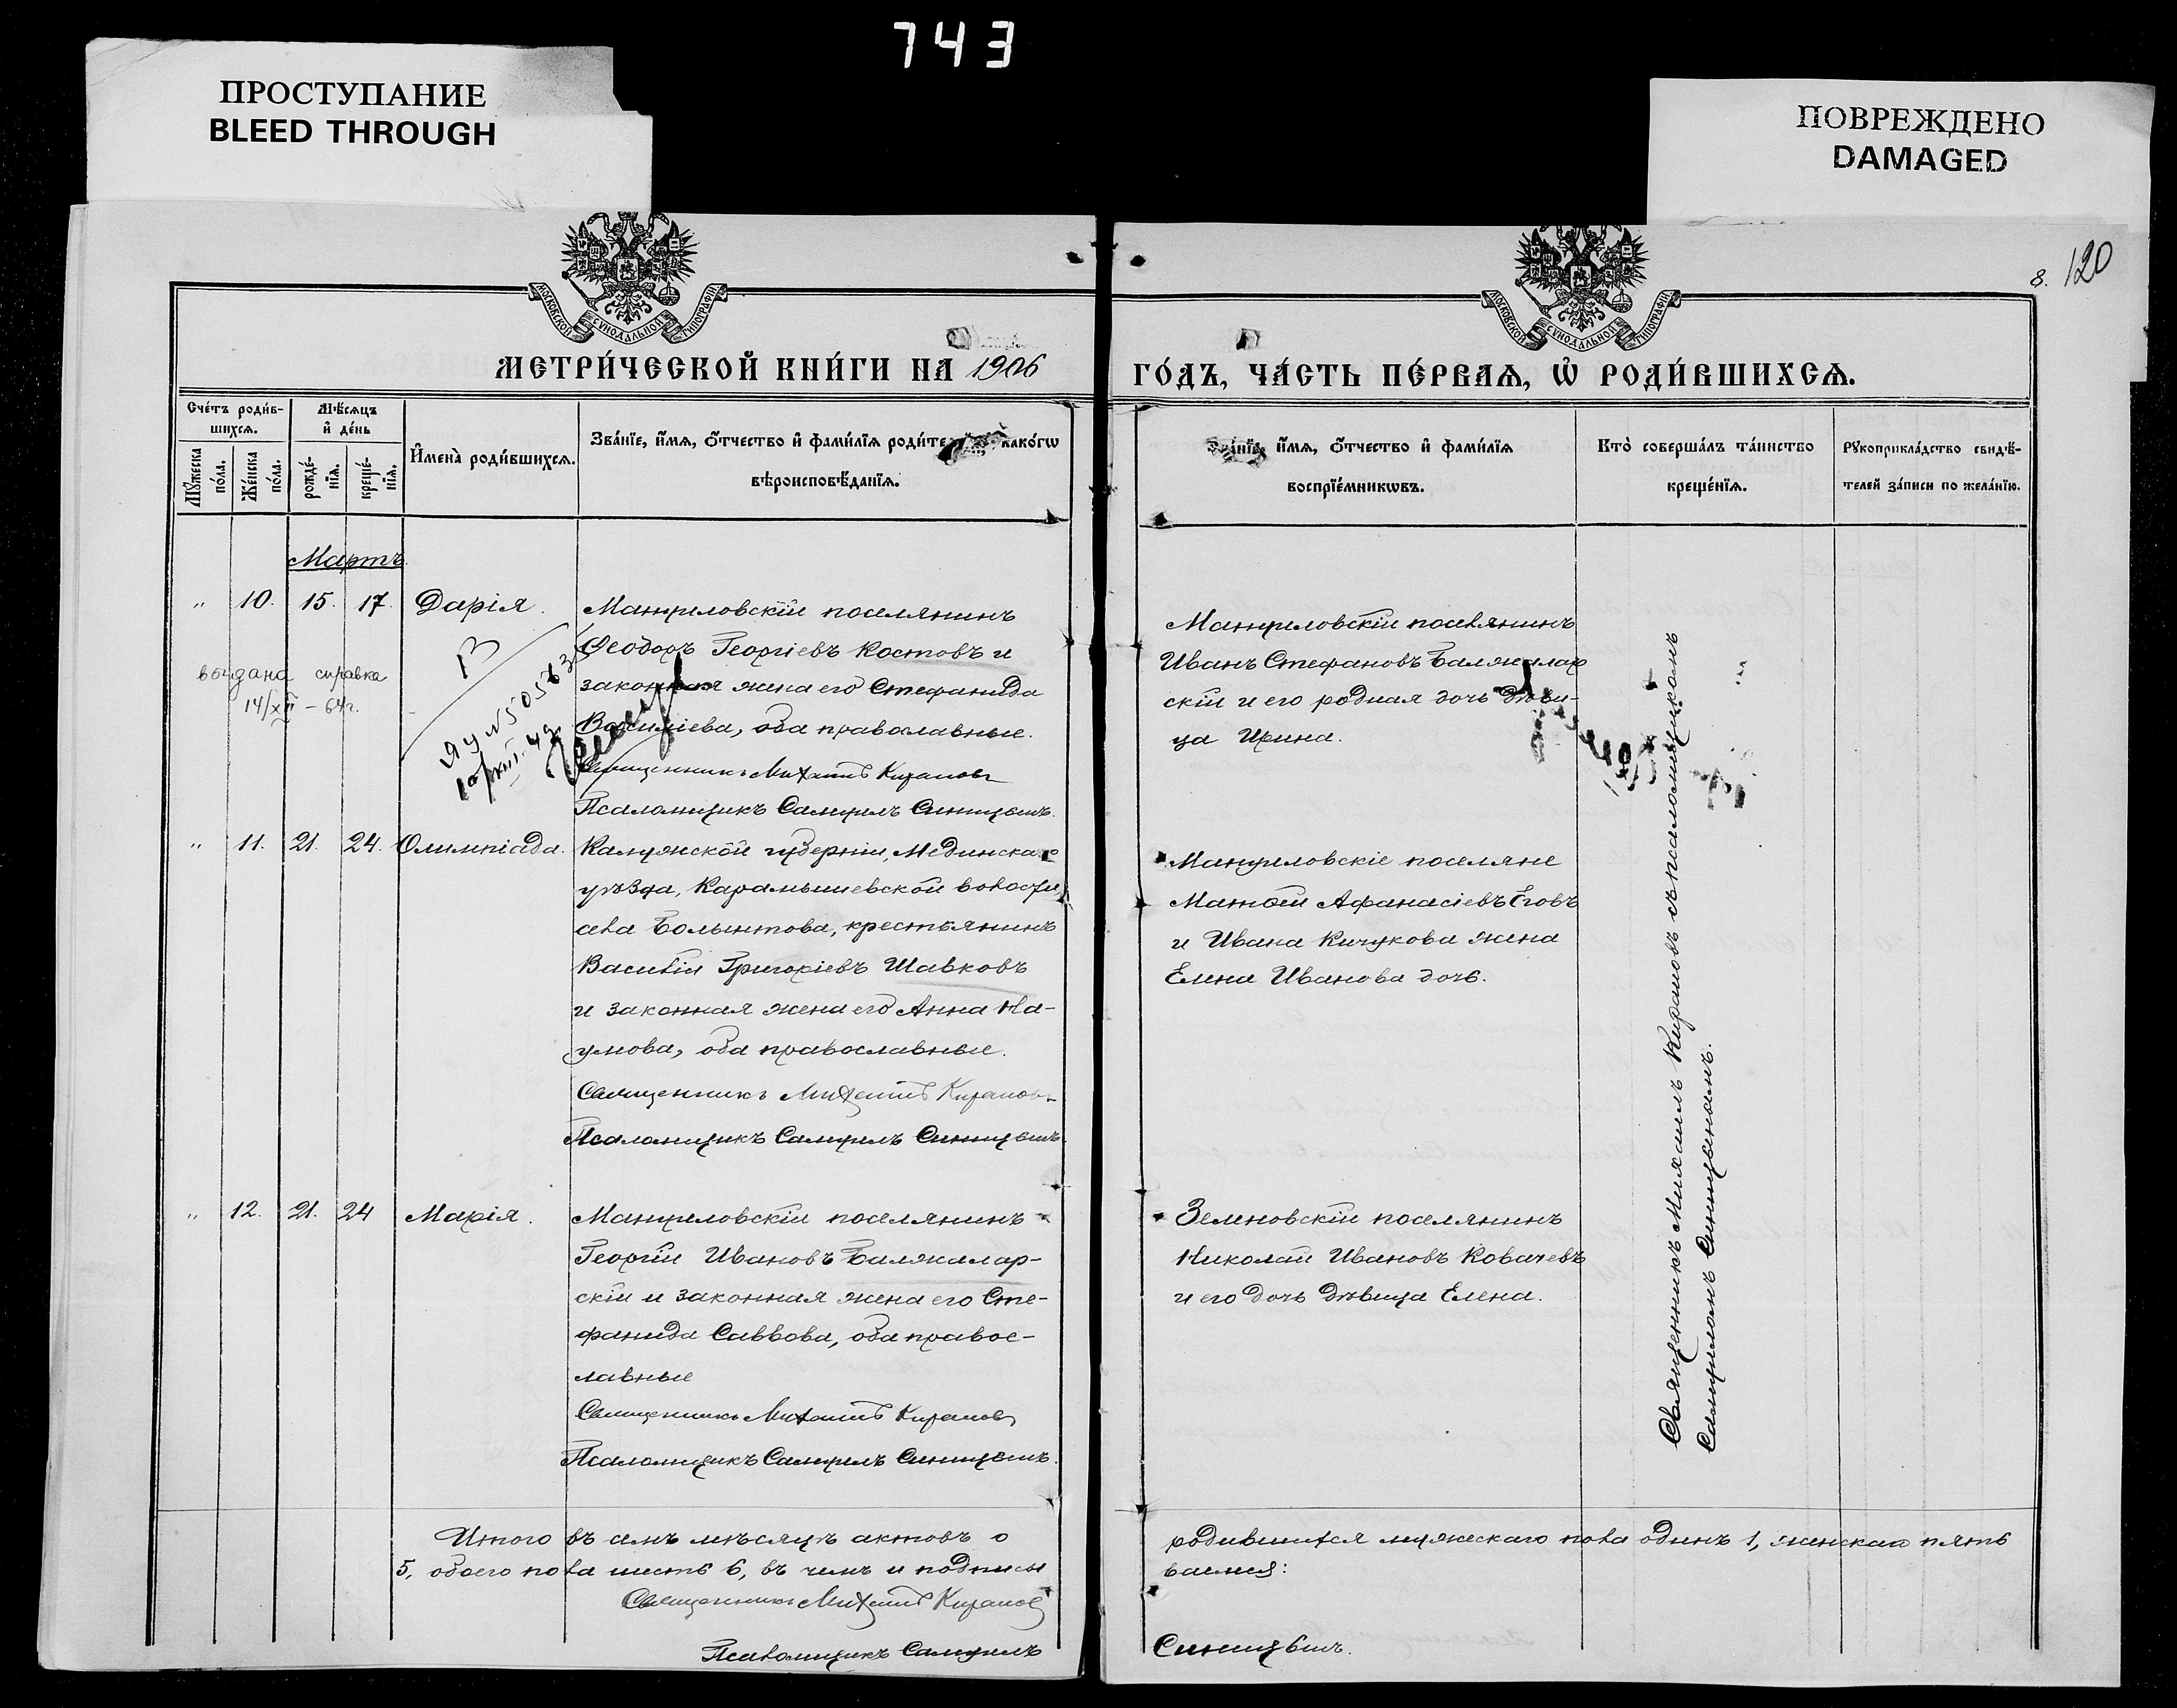 743
ПРОСТУПАНИЕ
BLEED THROUGH
ПОВРЕЖДЕНО
DAMAGED
8. 120
МОСКОВСКОЙ СѴНОДАЛЬНОЙ ТИПОГРАФІИ
МОСКОВСКОЙ СѴНОДАЛЬНОЙ ТИПОГРАФІИ
МЕТРИ́ЧЕСКОЙ КНИ́ГИ НА 1906
ГО́ДЪ, ЧА́СТЬ ПЕ́РВАѦ, Ѡ҆ РОДИ́ВШИХСѦ.
Сче́тъ роди́в-
шихсѧ.
Мѣ́сѧцъ
и҆ де́нь
Мꙋ́жеска
по́ла.
Же́нска
по́ла.
рожде́-
нїѧ.
креще́-
нїѧ.
И҆мена̀ роди́вшихсѧ.
Зва́нїе, и҆́мѧ, ѻ҆́тчество и҆ фами́лїѧ роди́те како́гѡ
вѣроисповѣ́данїѧ.
Зва́нїе, и҆́мѧ, ѻ҆́тчество и҆ фами́лїѧ
воспрїе́мникѡвъ.
Кто̀ соверша́лъ та́инство
креще́нїѧ.
Рꙋкоприкла́дство свидѣ́-
телей за́писи по жела́нїю.
Мартъ
" 10. 15. 17. Дарія.
Мануиловскій поселянинъ
Ѳеодоръ Георгіевъ Костовъ и
законная жена его Стефанида
Васильева, оба православные.
Священникъ Михаилъ Кирановъ
Псаломщикъ Самуилъ Синицынъ.
выдана справка
14/XII – 64г.
В
ЯУ № 505831
Мануиловскій поселянинъ
Иванъ Стефановъ Балжалар
скій и его родная дочь дѣви-
ца Ирина.
" 11. 21. 24. Олимпіада.
Калужской губерніи, Мединскаго
уѣзда, Карамышевской волости,
села Болынтова, крестьянинъ
Василій Григоріевъ Шавковъ
и законная жена его Анна На-
умова, оба православные.
Священникъ Михаилъ Кирановъ
Псаломщикъ Самуилъ Синицынъ.
Мануиловскіе поселяне
Матѳій Афанасіевъ Еговъ
и Ивана Кичукова жена
Елена Иванова дочь.
" 12. 21. 24 Марія.
Мануиловскій поселянинъ
Георгій Ивановъ Балжалар-
скій и законная жена его Сте-
фанида Саввова, оба правос-
лавные
Священникъ Михаилъ Кирановъ
Псаломщикъ Самуилъ Синицынъ.
Зеленовскій поселянинъ
Николай Ивановъ Ковачевъ
и его дочь дѣвица Елена.
Священникъ Михаилъ Кирановъ съ псаломщикомъ
Самуиломъ Синицынымъ.
Итого въ семъ мѣсяцѣ актовъ о
родившихся мужескаго пола одинъ 1, женскаго пять
5, обоего пола шесть 6, въ чемъ и подписы
ваемся:
Священникъ Михаилъ Кирановъ
Псаломщикъ Самуилъ
Синицынъ.